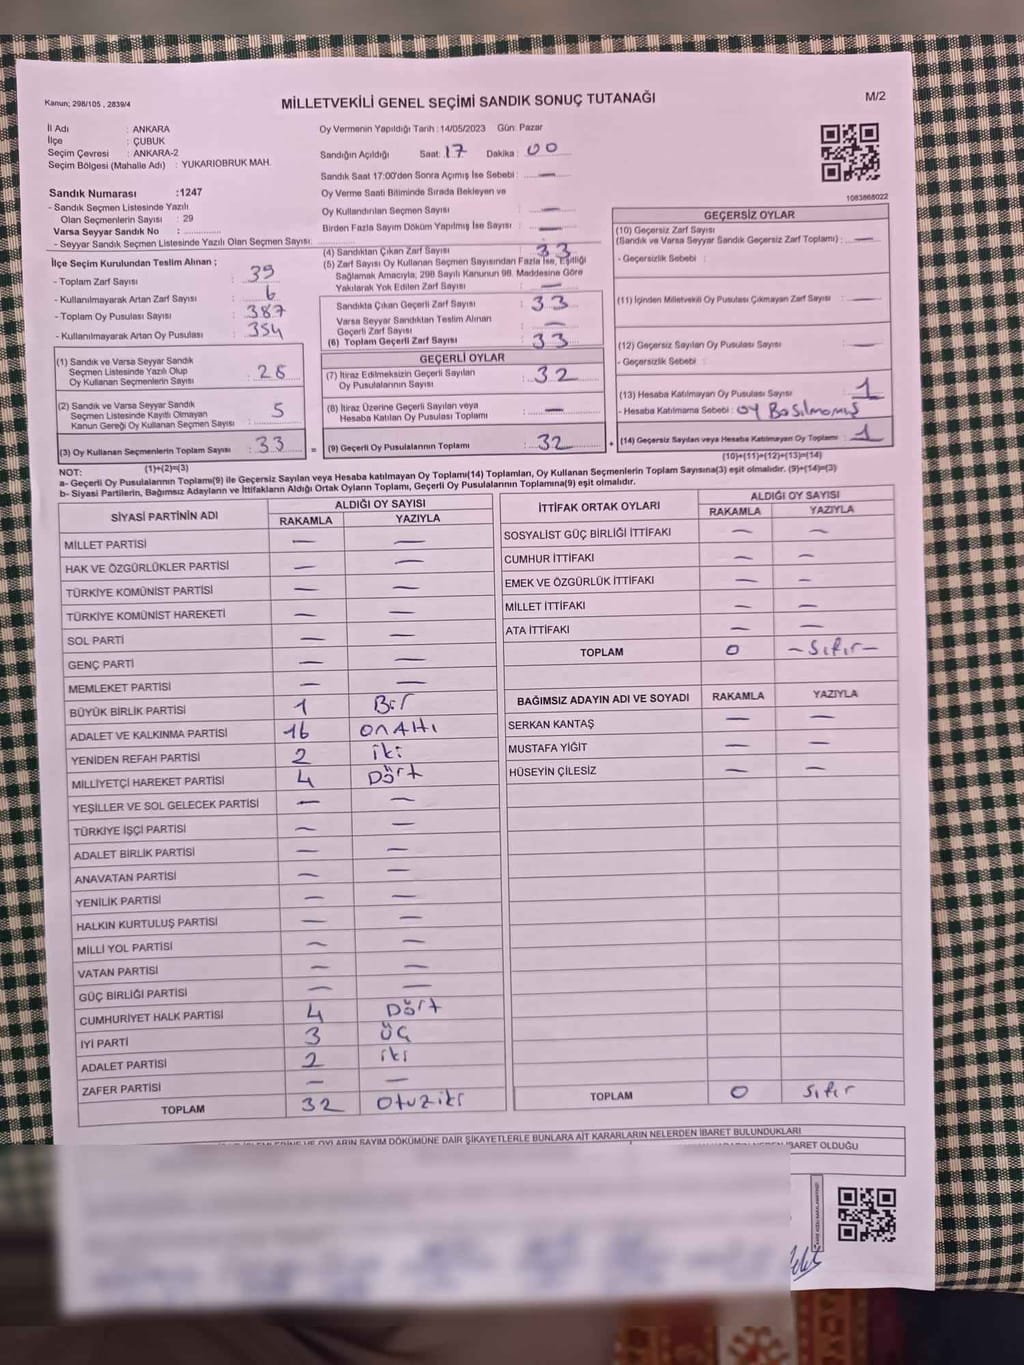 Kanun; 298/105 , 2839/4
MİLLETVEKİLİ GENEL SEÇİMİ SANDIK SONUÇ TUTANAĞI
M/2
İl Adı : ANKARA
İlçe : ÇUBUK
Seçim Çevresi : ANKARA-2
Seçim Bölgesi (Mahalle Adı) : YUKARIOBRUK MAH.
Sandık Numarası :1247
- Sandık Seçmen Listesinde Yazılı
Olan Seçmenlerin Sayısı : 29
Varsa Seyyar Sandık No :
- Seyyar Sandık Seçmen Listesinde Yazılı Olan Seçmen Sayısı:
Oy Vermenin Yapıldığı Tarih : 14/05/2023 Gün: Pazar
Sandığın Açıldığı Saat: 17 Dakika : 00
Sandık Saat 17:00'den Sonra Açımış İse Sebebi : —
Oy Verme Saati Bitiminde Sırada Bekleyen ve
Oy Kullandırılan Seçmen Sayısı —
Birden Fazla Sayım Döküm Yapılmış İse Sayısı : —
1083868022
İlçe Seçim Kurulundan Teslim Alınan ;
- Toplam Zarf Sayısı : 39
- Kullanılmayarak Artan Zarf Sayısı : 6
- Toplam Oy Pusulası Sayısı : 387
- Kullanılmayarak Artan Oy Pusulası : 354
(1) Sandık ve Varsa Seyyar Sandık
Seçmen Listesinde Yazılı Olup
Oy Kullanan Seçmenlerin Sayısı : 28
(2) Sandık ve Varsa Seyyar Sandık
Seçmen Listesinde Kayıtlı Olmayan
Kanun Gereği Oy Kullanan Seçmen Sayısı : 5
(3) Oy Kullanan Seçmenlerin Toplam Sayısı : 33
(1)+(2)=(3)
(4) Sandıktan Çıkan Zarf Sayısı : 33
(5) Zarf Sayısı Oy Kullanan Seçmen Sayısından Fazla İse, Eşitliği
Sağlamak Amacıyla; 298 Sayılı Kanunun 98. Maddesine Göre
Yakılarak Yok Edilen Zarf Sayısı : —
Sandıkta Çıkan Geçerli Zarf Sayısı : 33
Varsa Seyyar Sandıktan Teslim Alınan
Geçerli Zarf Sayısı : —
(6) Toplam Geçerli Zarf Sayısı : 33
GEÇERLİ OYLAR
(7) İtiraz Edilmeksizin Geçerli Sayılan
Oy Pusulalarının Sayısı : 32
(8) İtiraz Üzerine Geçerli Sayılan veya
Hesaba Katılan Oy Pusulası Toplamı : —
= (9) Geçerli Oy Pusulalarının Toplamı : 32 +
GEÇERSİZ OYLAR
(10) Geçersiz Zarf Sayısı
(Sandık ve Varsa Seyyar Sandık Geçersiz Zarf Toplamı) : —
- Geçersizlik Sebebi :
(11) İçinden Milletvekili Oy Pusulası Çıkmayan Zarf Sayısı : —
(12) Geçersiz Sayılan Oy Pusulası Sayısı : —
- Geçersizlik Sebebi :
(13) Hesaba Katılmayan Oy Pusulası Sayısı : 1
- Hesaba Katılmama Sebebi : oy Basılmamış
(14) Geçersiz Sayılan veya Hesaba Katılmayan Oy Toplamı : 1
(10)+(11)+(12)+(13)=(14)
NOT:
a- Geçerli Oy Pusulalarının Toplamı(9) ile Geçersiz Sayılan veya Hesaba katılmayan Oy Toplamı(14) Toplamları, Oy Kullanan Seçmenlerin Toplam Sayısına(3) eşit olmalıdır. (9)+(14)=(3)
b- Siyasi Partilerin, Bağımsız Adayların ve İttifakların Aldığı Ortak Oyların Toplamı, Geçerli Oy Pusulalarının Toplamına(9) eşit olmalıdır.
SİYASİ PARTİNİN ADI ALDIĞI OY SAYISI
RAKAMLA YAZIYLA
MİLLET PARTİSİ — —
HAK VE ÖZGÜRLÜKLER PARTİSİ — —
TÜRKİYE KOMÜNİST PARTİSİ — —
TÜRKİYE KOMÜNİST HAREKETİ — —
SOL PARTİ — —
GENÇ PARTİ — —
MEMLEKET PARTİSİ — —
BÜYÜK BİRLİK PARTİSİ 1 Bir
ADALET VE KALKINMA PARTİSİ 16 onAltı
YENİDEN REFAH PARTİSİ 2 iki
MİLLİYETÇİ HAREKET PARTİSİ 4 Dört
YEŞİLLER VE SOL GELECEK PARTİSİ — —
TÜRKİYE İŞÇİ PARTİSİ — —
ADALET BİRLİK PARTİSİ — —
ANAVATAN PARTİSİ — —
YENİLİK PARTİSİ — —
HALKIN KURTULUŞ PARTİSİ — —
MİLLİ YOL PARTİSİ — —
VATAN PARTİSİ — —
GÜÇ BİRLİĞİ PARTİSİ — —
CUMHURİYET HALK PARTİSİ 4 Dört
İYİ PARTİ 3 üç
ADALET PARTİSİ 2 iki
ZAFER PARTİSİ — —
TOPLAM 32 otuziki
İTTİFAK ORTAK OYLARI ALDIĞI OY SAYISI
RAKAMLA YAZIYLA
SOSYALİST GÜÇ BİRLİĞİ İTTİFAKI — —
CUMHUR İTTİFAKI — —
EMEK VE ÖZGÜRLÜK İTTİFAKI — —
MİLLET İTTİFAKI — —
ATA İTTİFAKI — —
TOPLAM 0 —Sıfır—
BAĞIMSIZ ADAYIN ADI VE SOYADI RAKAMLA YAZIYLA
SERKAN KANTAŞ — —
MUSTAFA YİĞİT — —
HÜSEYİN ÇİLESİZ — —
TOPLAM 0 Sıfır
VE OYLARIN SAYIM DÖKÜMÜNE DAİR ŞİKAYETLERLE BUNLARA AİT KARARLARIN NELERDEN İBARET BULUNDUKLARI
İBARET OLDUĞU